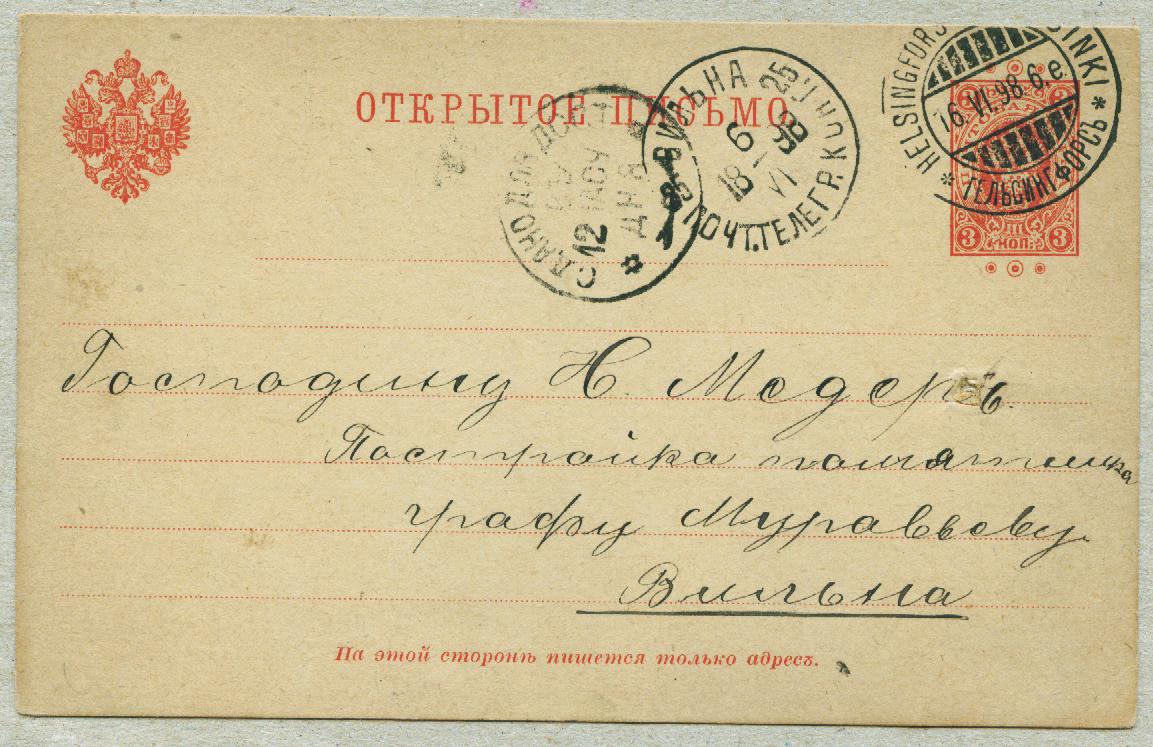 ОТКРЫТОЕ ПИСЬМО.
HELSINGFORS
HELSINKI
16.VI.98. 6 e
ГЕЛЬСИНГФОРСЪ
3 3
КОП.
ВИЛЬНА
6
18 VI 98
ПОЧТ. ТЕЛЕГР. КОН.
СДАНО ДЛЯ ДОСТ
12 ЧАСУ
ДНЯ
Господину Н. Медеръ.
Постройка памятника
графу Муравьеву
Вильна
На этой сторонѣ пишется только адресъ.